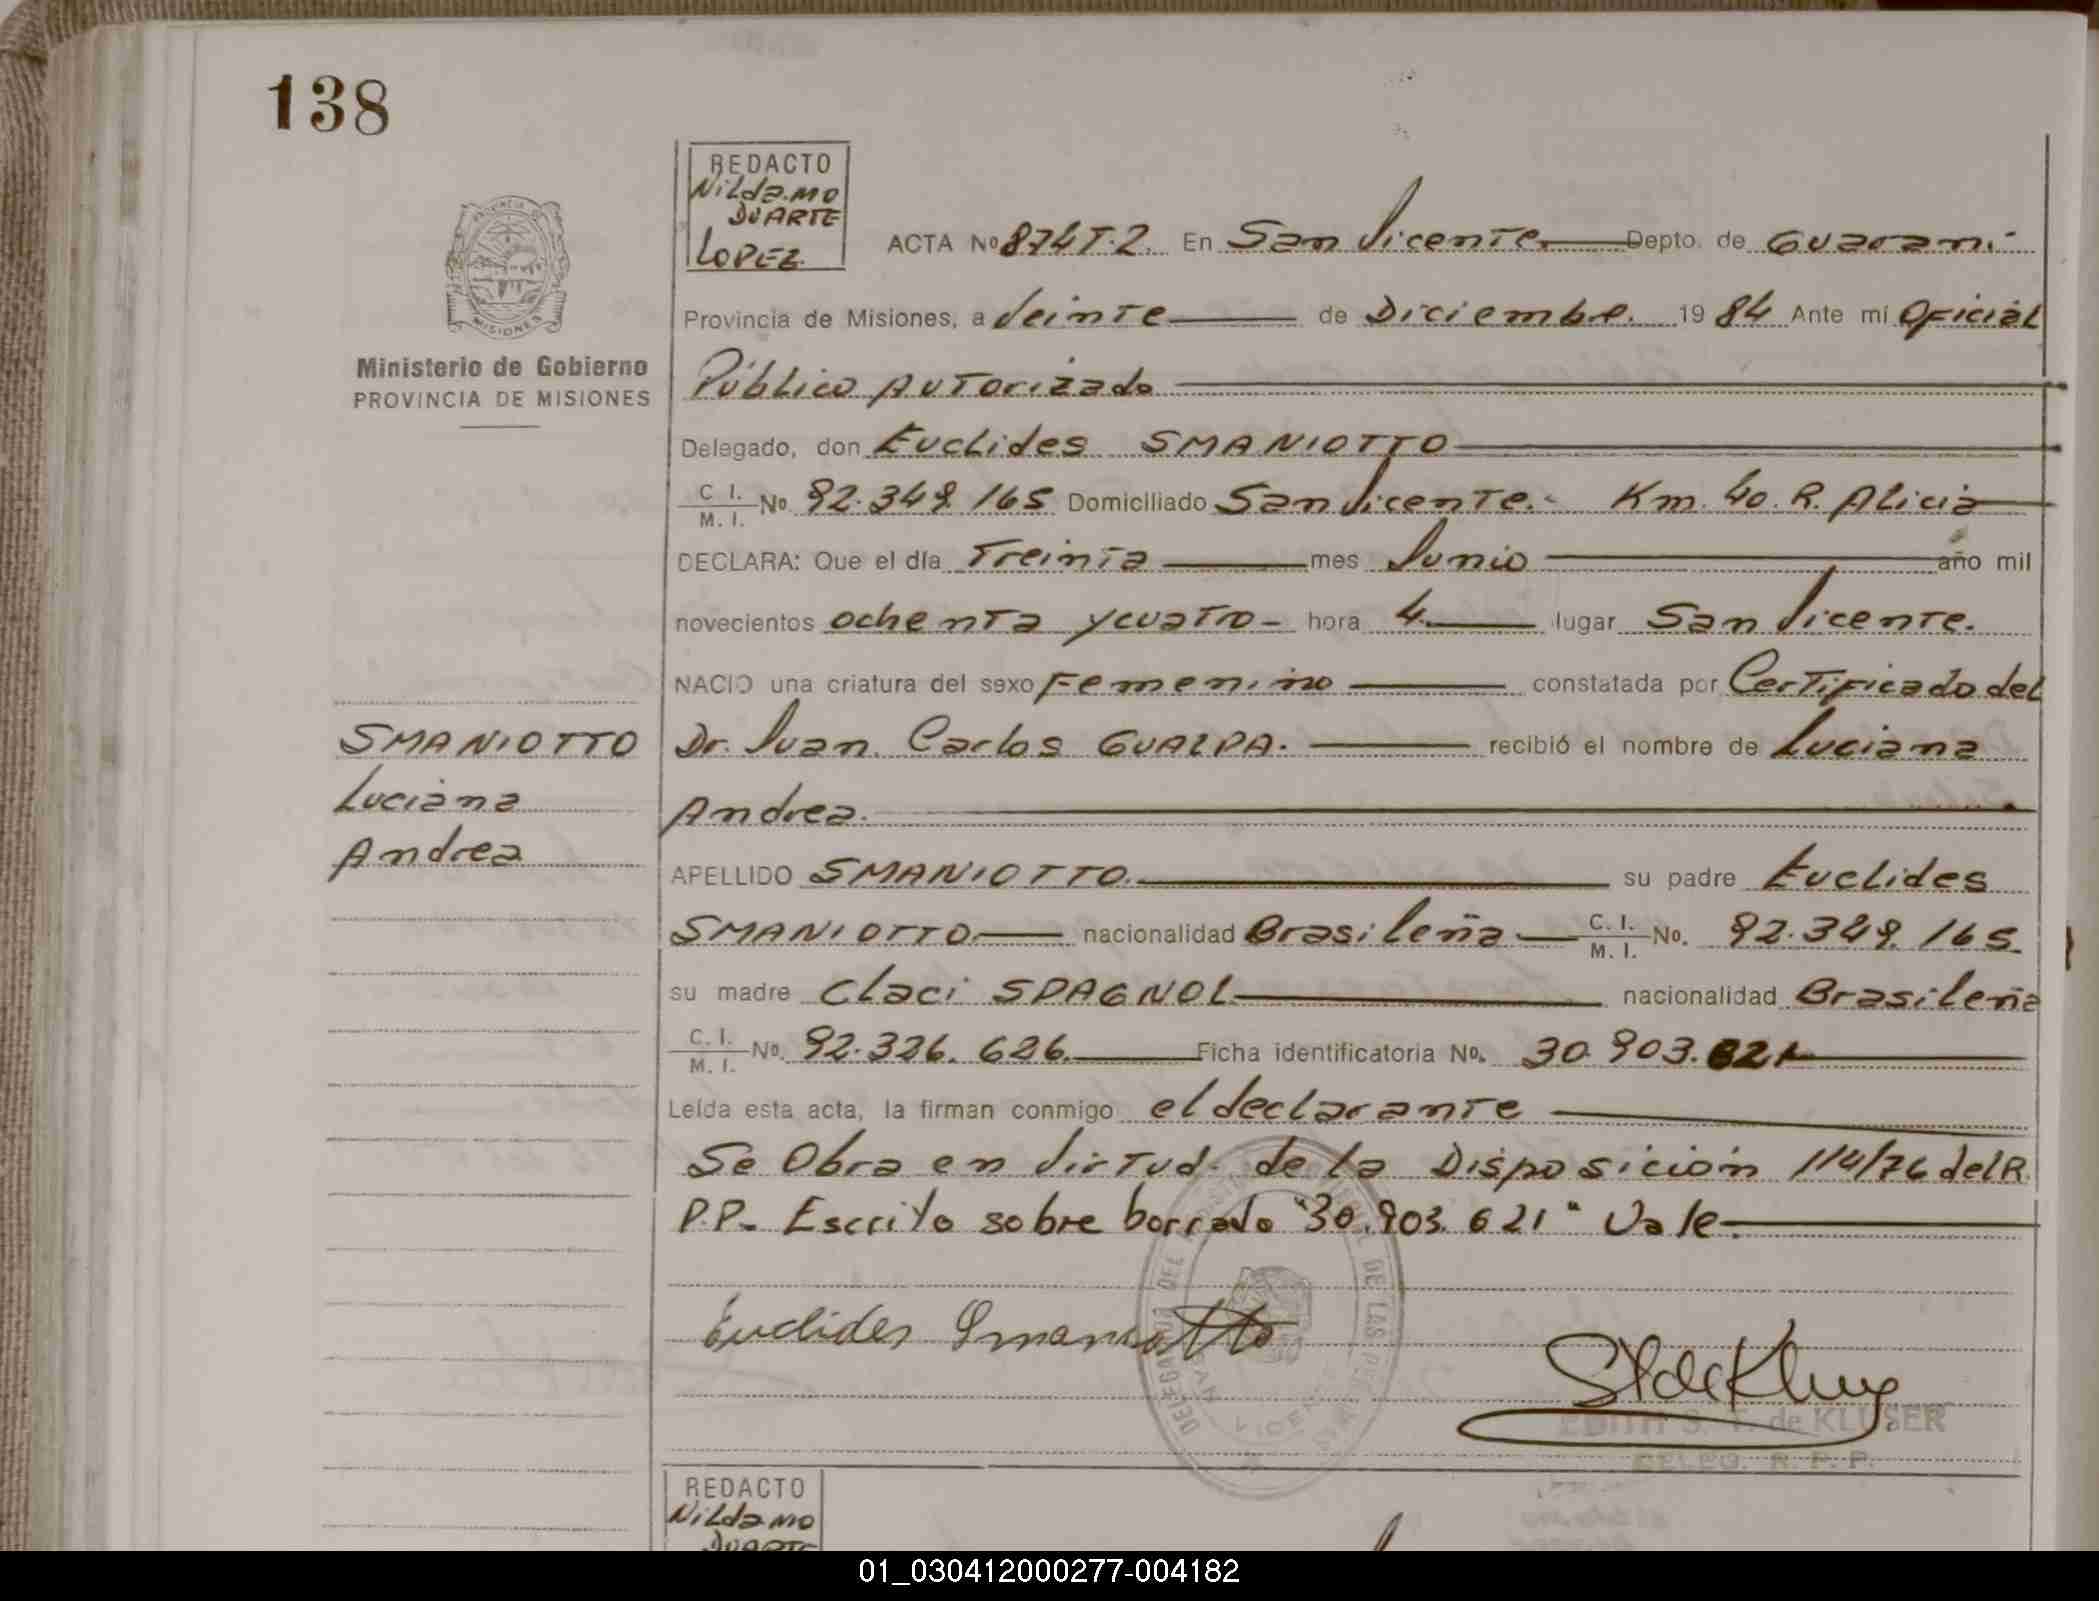 138
REDACTO
Nilda.MO
DUARTE
LOPEZ.
PROVINCIA DE
MISIONES
Ministerio de Gobierno
PROVINCIA DE MISIONES
ACTA Nº 874T.2. En San Vicente Depto. de Guarani
Provincia de Misiones, a Veinte de Diciembre. 1984 Ante mí Oficial
Público Autorizado
Delegado, don Euclides SMANIOTTO
C. I. / M. I. Nº 92.349.165 Domiciliado San Vicente. Km. 40. R. Alicia
DECLARA: Que el día Treinta mes Junio año mil
novecientos ochenta y cuatro hora 4. lugar San Vicente.
NACIO una criatura del sexo Femenino constatada por Certificado del
Dr. Juan Carlos GUALPA. recibió el nombre de Luciana
Andrea.
SMANIOTTO
Luciana
Andrea
APELLIDO SMANIOTTO. su padre Euclides
SMANIOTTO nacionalidad Brasileña C. I. / M. I. No. 92.349.165.
su madre Claci SPAGNOL nacionalidad Brasileña
C. I. / M. I. Nº. 92.326.626. Ficha identificatoria Nº. 30.903.621
Leída esta acta, la firman conmigo el declarante
Se Obra en Virtud de la Disposición 114/76 del R.
P.P. Escrito sobre borrado "30.903.621" Vale.
Euclides Smaniotto
EDITH S. T. de KLUSER
DELEG. R. P. P.
REDACTO
Nilda MO
DUARTE
01_030412000277-004182